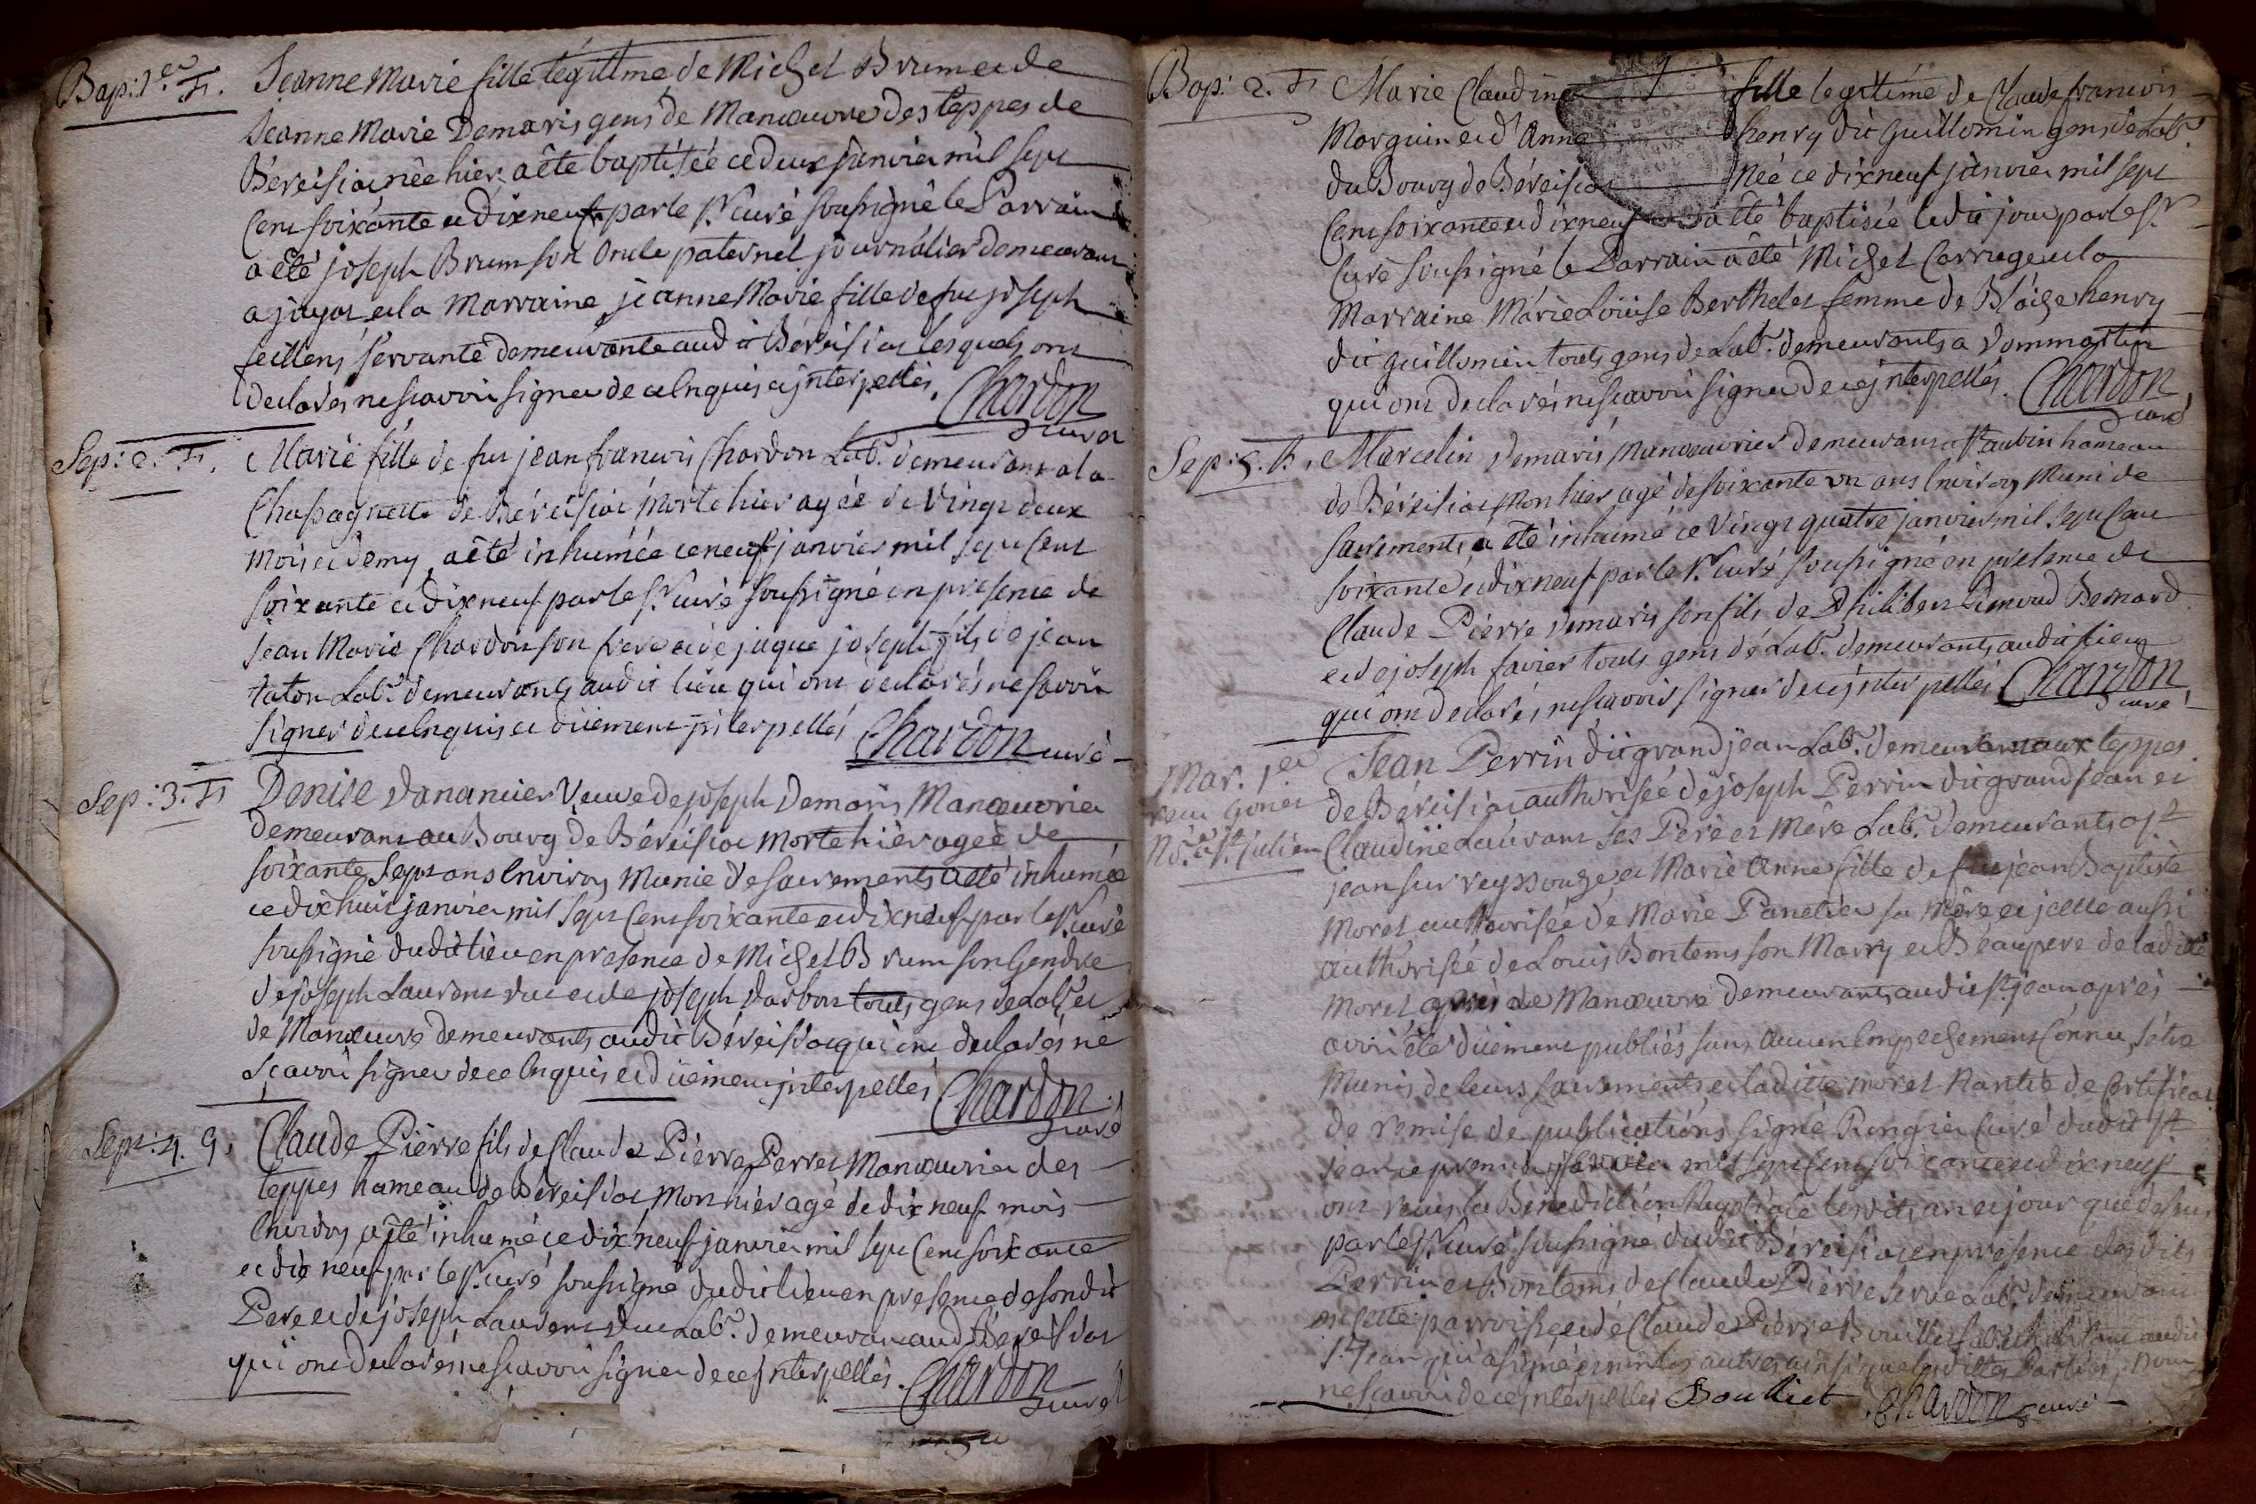 Bap: 1.er F.
Jeanne Marie fille légitime de Michel Brum et de
Jeanne Marie Demaris gens de Manoeuvre des teppes de
Béréisiat née hier a été baptisée ce deux janvier mil sept
Cent soixante et dixneuf par le Sr. curé soussigné le Parrain
a été joseph Brum son Oncle paternel journalier demeurant
a jayat et la Marraine jeanne Marie fille de fut joseph
servante demeurante audit Béréisiat lesquels ont
declarés ne scavoir signer de ce Enquis et jnterpellés. Chardon
curé
Sep: 2. F.
Marie fille de fut jean francois Chardon Lab.r demeurant a la
Chassagnette de Béréisiat morte hier agée de Vingt deux
mois et demy a été inhumée ce neuf janvier mil sept cent
soixante et dixneuf par le Sr. curé soussigné en presence de
Jean Marie Chardon son frere et de jaque joseph fils de jean
taton Lab.r demeurants audit lieu qui ont declarés ne savoir
signer de ce Enquis et dûement jnterpellés Chardon curé
Sep: 3. F.
Denise Danancier Veuve de joseph Demaris Manoeuvrier
demeurant au Bourg de Béréisiat Morte hier agée de
soixante sept ans Environ Munie de sacrements a été inhumée
ce dixhuit janvier mil sept Cent soixante et dixneuf par le Sr. curé
soussigné dudit lieu en presence de Michel Brum son Gendre
de joseph Laurent duc et de joseph Darbon touts gens de Lab.r et
de Manoeuvre demeurants audit Béréisiat qui ont declarés ne
scavoir signer de ce Enquis et dûement jnterpellés Chardon
curé
Sept: 4. G.
Claude Pierre fils de Claude Pierre Perret Manoeuvrier des
teppes hameau de Béréisiat Mort hier agé de dix neuf mois
Environ a été inhumé ce dix neuf janvier mil sept Cent soixante
et dix neuf par le Sr. curé soussigné dudit lieu en presence de son dit
Pere et de joseph Laurent duc Lab.r demeurant audit Béréisiat
qui ont declarés ne scavoir signer de ce jnterpellés. Chardon
curé
Bap: 2. F.
Marie Claudine fille legitime de Claude francois
Morguin et d'Anne henry dit Guillomin gens de Lab.r
du Bourg de Béréisiat Née ce dixneuf janvier mil sept
Cent soixante et dixneuf a été baptisée ledit jour par le Sr.
Curé soussigné le Parrain a été Michel Carruge et la
Marraine Marie Louise Berthelet femme de Blaise henry
dit guillomin touts gens de Lab.r demeurants a Dommartin
qui ont declarés ne scavoir signer de ce jnterpellés. Chardon
curé
Sep: 5. G.
Marcelin Demaris Manoeuvrier demeurant a St aubin hameau
de Béréisiat Mort hier agé de soixante un ans Environ Muni de
sacrements a été inhumé ce Vingt quatre janvier mil sept Cent
soixante et dixneuf par le Sr. curé soussigné en presence de
Claude Pierre Demaris son fils de Philibert Bernard
et de joseph favier touts gens de Lab.r demeurants audit lieu
qui ont declarés ne scavoir signer de ce jnterpellés Chardon
curé
Mar. 1.er
Jean Perrin dit grand jean Lab.r demeurant aux teppes
de Béréisiat authorisée de joseph Perrin dit grand jean et
Claudine Laurent ses Père et Mère Lab.r demeurants a St.
jean sur reyssouze et Marie Anne fille de fut jean Baptiste
Moret authorisée de Marie Panetier sa Mère et jcelle aussi
authorisée de Louis Bontems son Marry et Beaupere de la dite
Moret gens de Manoeuvre demeurants audit St. jean après
avoir été dûement publiés sans aucun Empechement Connu, s'etre
Munis de leurs sacrements et la ditte moret Nantie de Certificat
de remise de publications signé Curé dudit St.
Jean ce premier mil sept Cent soixante et dixneuf
ont reçus la Bénédiction Nuptiale lesdits an et jour que dessus
par le Sr. curé soussigné dudit Béréisiat en presence desdits
Perrin et Bontems de Claude Pierre Lab.r demeurant
en cette parroisse et de Claude Pierre Boulliet audit
St. Jean qui a signé et non les autres ainsi que lesdittes Parties pour
ne scavoir de ce jnterpellés Boulliet Chardon curé